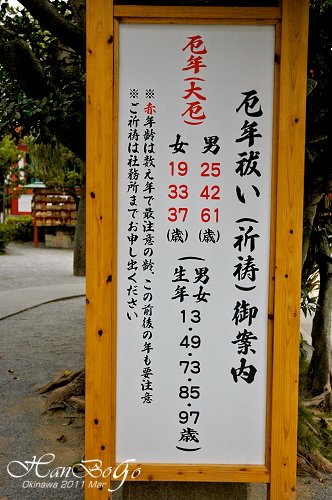 厄年祓い(祈祷)御案内
厄年(大厄)
男 25 42 61(歳)
女 19 33 37(歳)
(男女生年 13・49・73・85・97歳)
※赤年齢は数え年で最注意の齢、この前後の年も要注意
※ご祈祷は社務所までお申し出ください
HanBoGo
Okinawa 2011 Mar